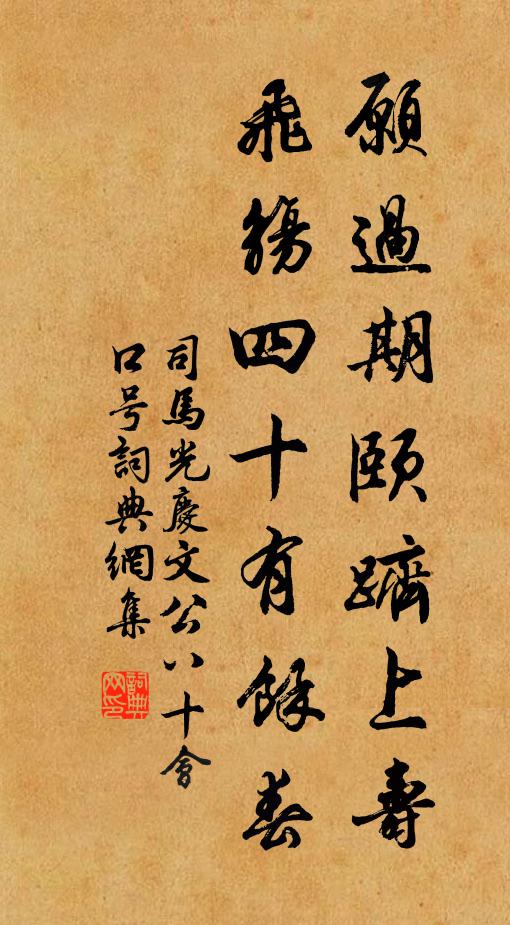 願過期頤躋上壽
飛觴四十有餘春
司馬光慶文公八十會
口号詞典網集
詞典網印